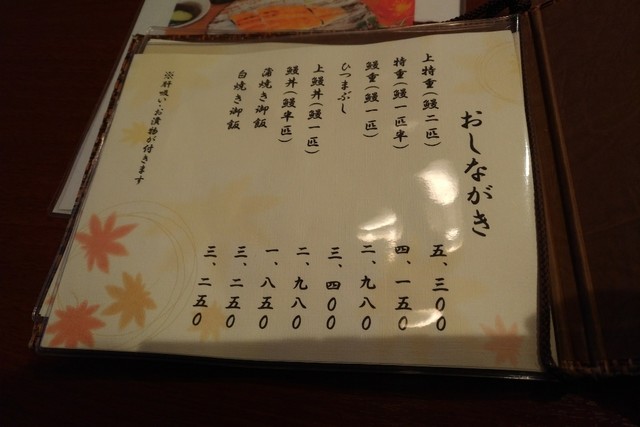 おしながき
上特重(鰻二匹) 五、三00
特重(鰻一匹半) 四、一五0
鰻重(鰻一匹) 二、九八0
ひつまぶし 三、四00
上鰻丼(鰻一匹) 二、九八0
鰻丼(鰻半匹) 一、八五0
蒲焼き御飯 三、二五0
白焼き御飯 三、二五0
※肝吸い・お漬物が付きます